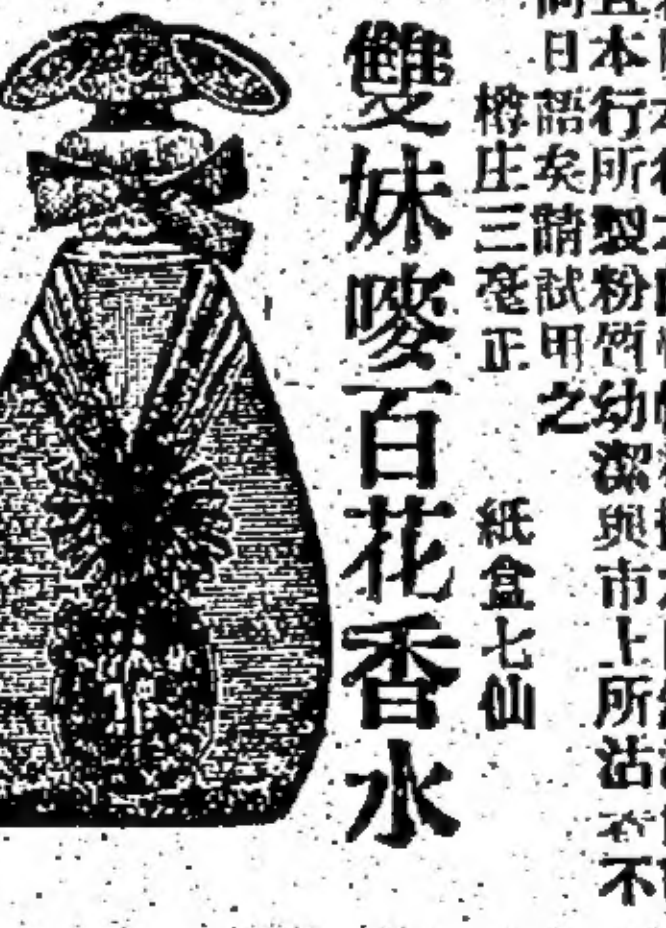 且本行所製粉質幼潔與市上所沽者不
同日語矣請試用之
樽庄三毫正 紙盒七仙
雙妹嘜百花香水